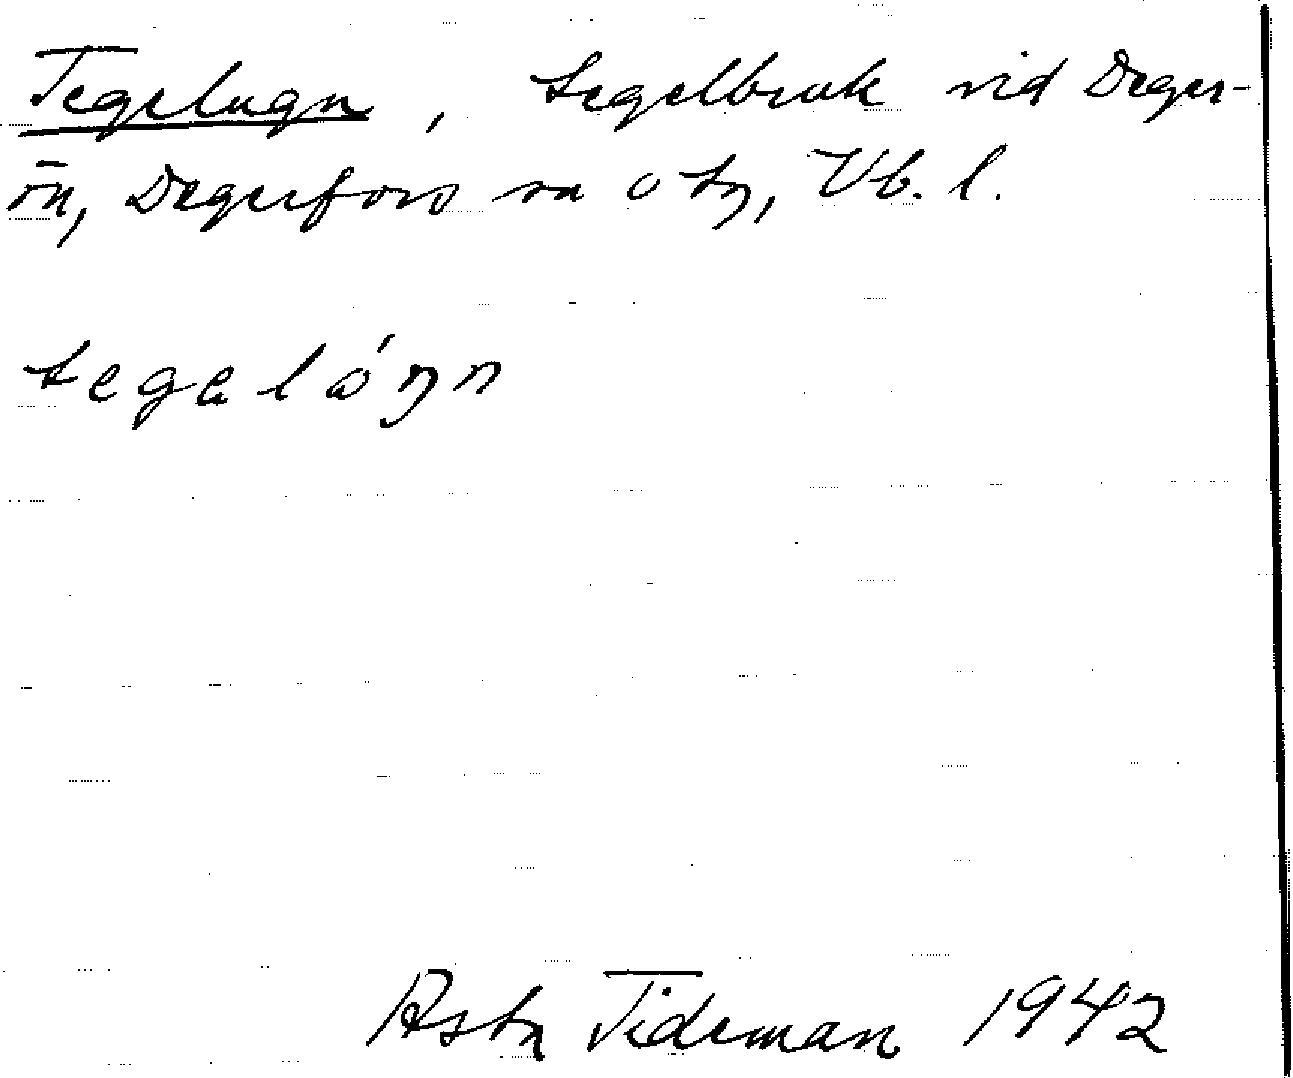 Tegelugn, tegelbruk vid Deger-
ön, Degerfors sn o tg, Vb. l.
tegalóŋn
Asta Tideman 1942